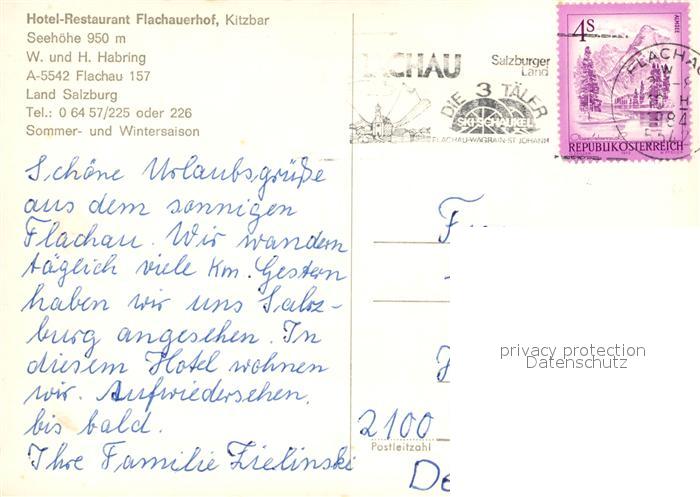 Hotel-Restaurant Flachauerhof, Kitzbar
Seehöhe 950 m
W. und H. Habring
A-5542 Flachau 157
Land Salzburg
Tel.: 0 64 57/225 oder 226
Sommer- und Wintersaison
Schöne Urlaubsgrüße
aus dem sonnigen
Flachau. Wir wandern
täglich viele Km. Gestern
haben wir uns Salz-
burg angesehen. In
diesem Hotel wohnen
wir. Aufwiedersehen,
bis bald.
Ihre Familie Zielinski
CHAU
Salzburger
Land
DIE 3 TÄLER
SKI-SCHAUKEL
FLACHAU-WAGRAIN-ST JOHANN
4S
ALMSEE
REPUBLIK ÖSTERREICH
FLACHAU
F
2100
Postleitzahl
De
privacy protection
Datenschutz